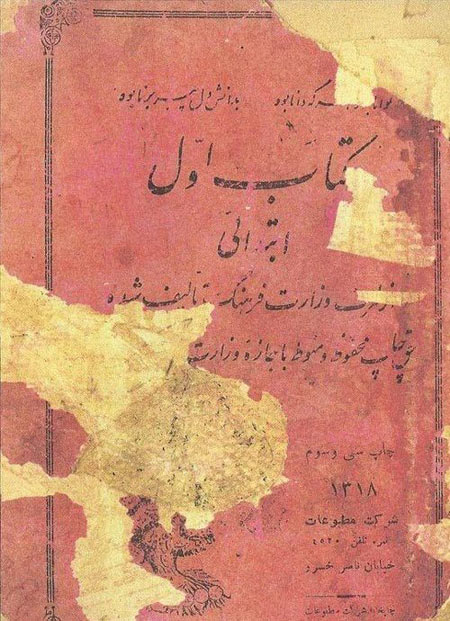 توانا بود هر که دانا بود بدانش دل پیر برنا بود
کتاب اوّل
ابتدائی
از طرف وزارت فرهنگ تألیف شده
حق چاپ محفوظ و منوط باجازه وزارت
چاپ سی و سوم
۱۳۱۸
شرکت مطبوعات
نمره تلفن ۴۵۲۰
خیابان ناصر خسرو
چاپخانه شرکت مطبوعات